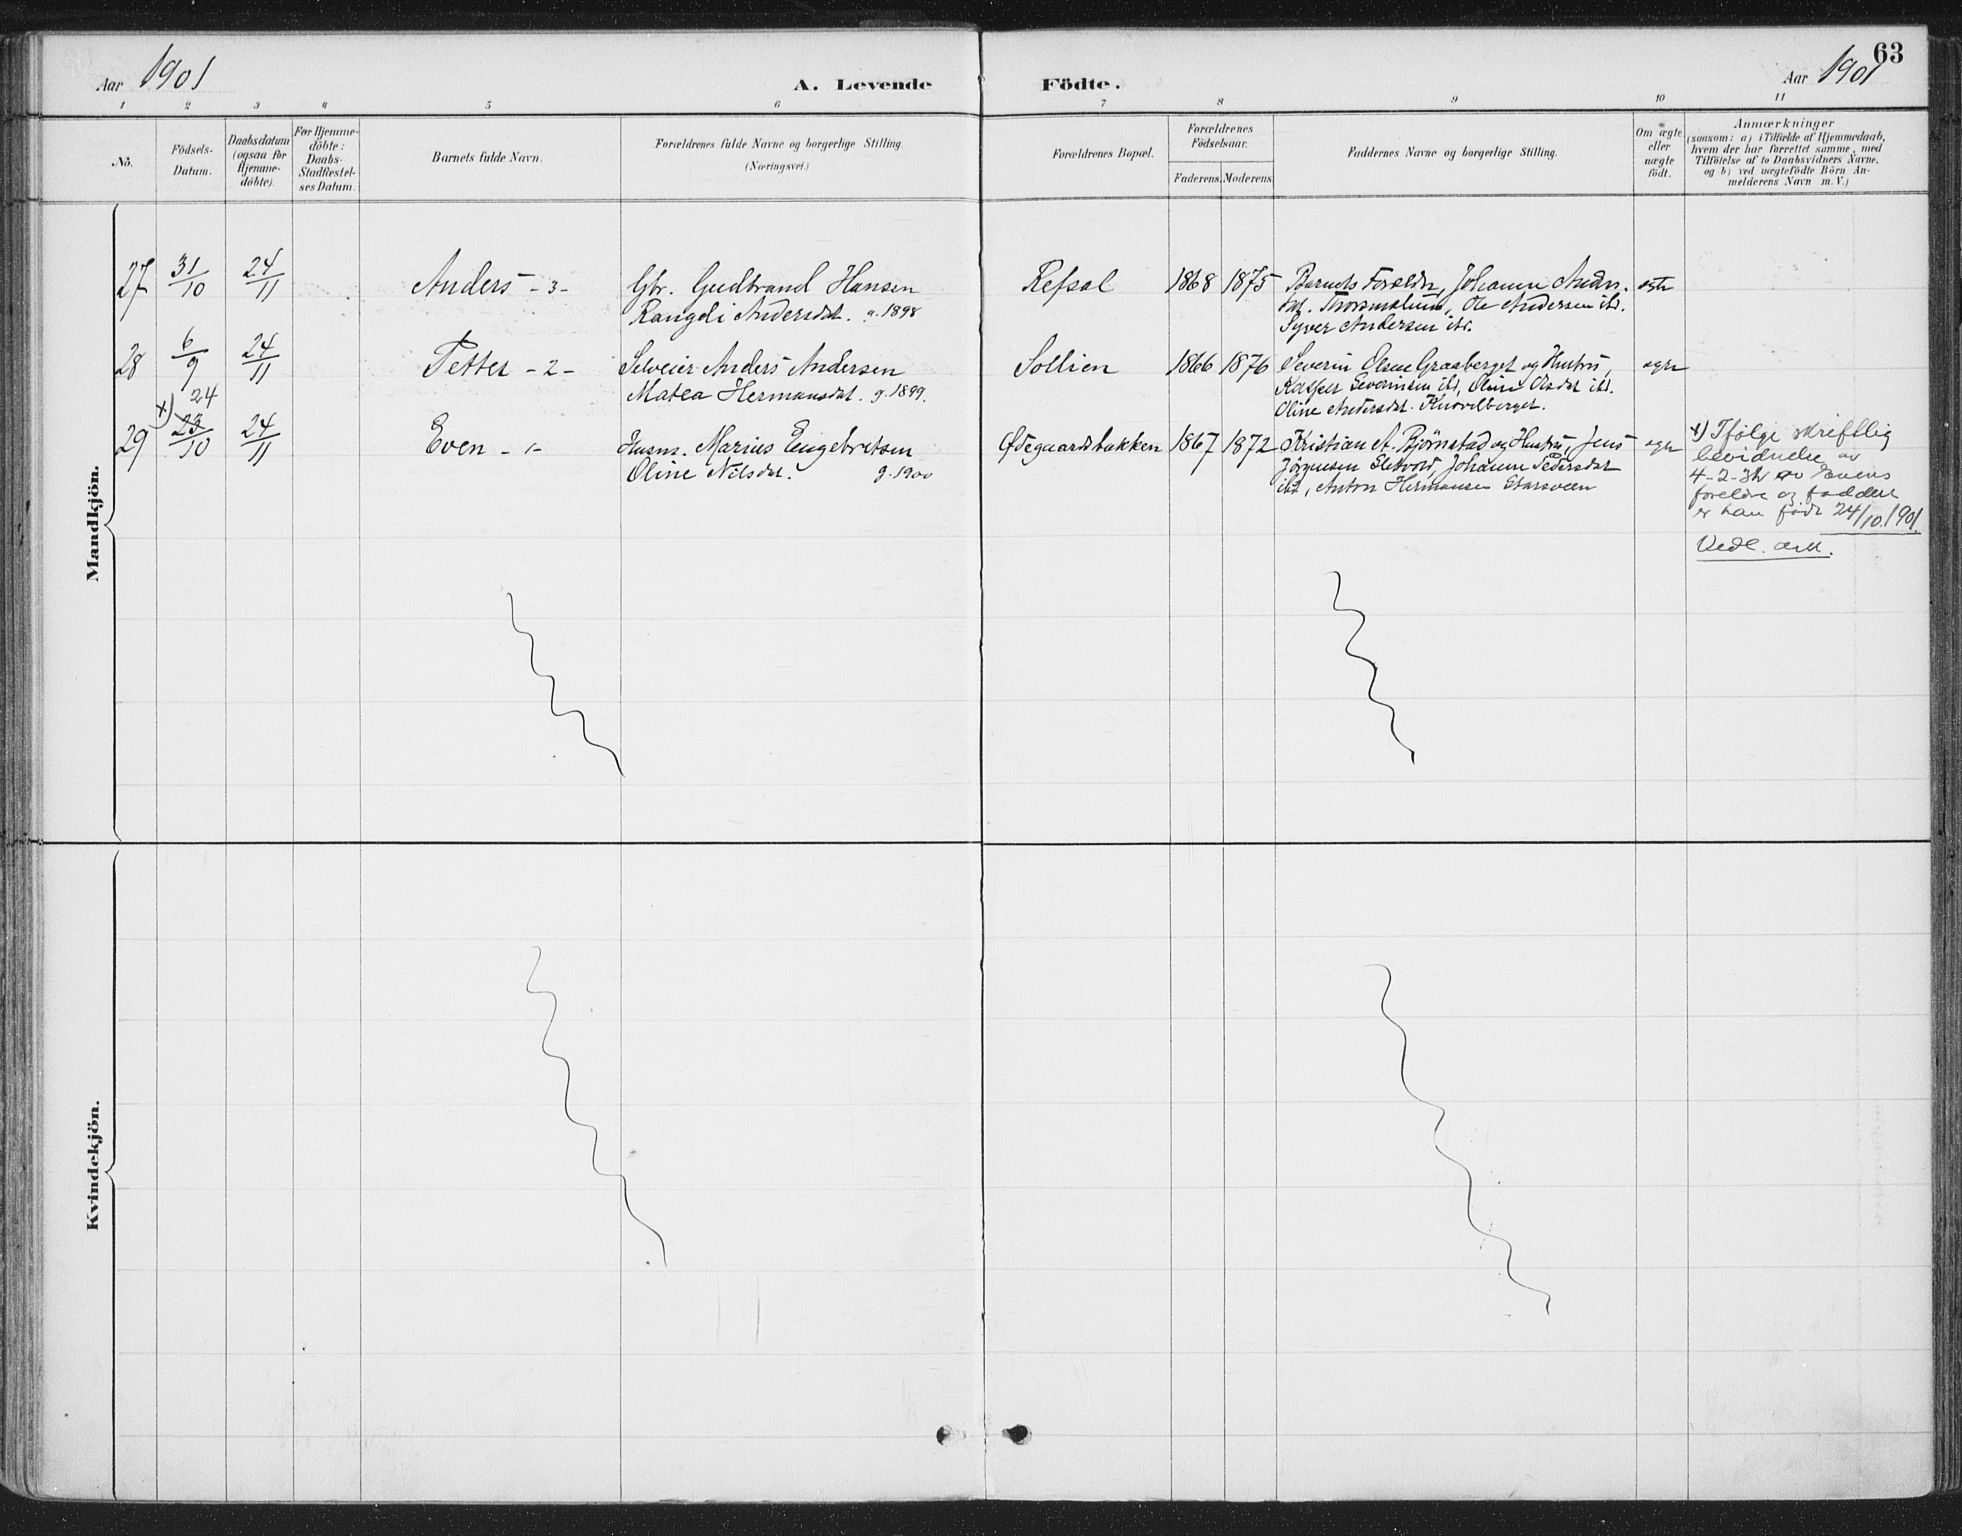 63
Aar 1901
A. Levende Födte.
Aar 1901
1 2 3 4 5 6 7 8 9 10 11
No.
Födsels-
Datum.
Daabsdatum
(ogsaa for
Hjemme-
döbte).
For Hjemme-
döbte:
Daabs-
Stadfæstel-
ses Datum.
Barnets fulde Navn.
Forældrenes fulde Navne og borgerlige Stilling.
(Næringsvei.)
Forældrenes Bopæl.
Forældrenes
Födselsaar.
Faderens. Moderens.
Faddernes Navne og borgerlige Stilling.
Om ægte
eller
uægte
födt.
Anmærkninger
(saasom: a) i Tilfælde af Hjemmedaab,
hvem der har forrettet samme, med
Tilföielse af to Daabsvidners Navne.
og b) ved uægtefödte Börn An-
melderens Navn m. V.)
Mandkjön.
27 31/10 24/11 Anders - 3 -
Gbr. Gudbrand Hansen
Rangdi Andersdat. g. 1898
Refsal 1868 1875
Barnets Forældre, Johanne Anders-
dat. Ole Andersen ibd.
Syver Andersen ibd.
ægte
28 6/9 24/11 Petter - 2 -
Selveier Anders Andersen
Matea Hermansdat. g. 1899.
Sollien 1866 1876
Severin Olsen Graaberget og Hustru,
Kasper Severinsen ibd, Oline Olsdat ibd.
Oline Andersdat.
ægte
29 x) 24 23/10 24/11 Even - 1 -
Husm. Marius Engebretsen
Oline Nilsdat. g. 1900
Ødegaardsbakken 1867 1872
Kristian A. Bjørnstad og Hustru, Jens
Jørgensen Sletvold, Johanne Pedersdat
ibd, Anton Hermansen
ægte
x) Ifølge skriftlig
bevidnelse av
4-2-34 av Evens
foreldre og faddere
er han född 24/10.1901
Vedl. ark.
Kvindekjön.